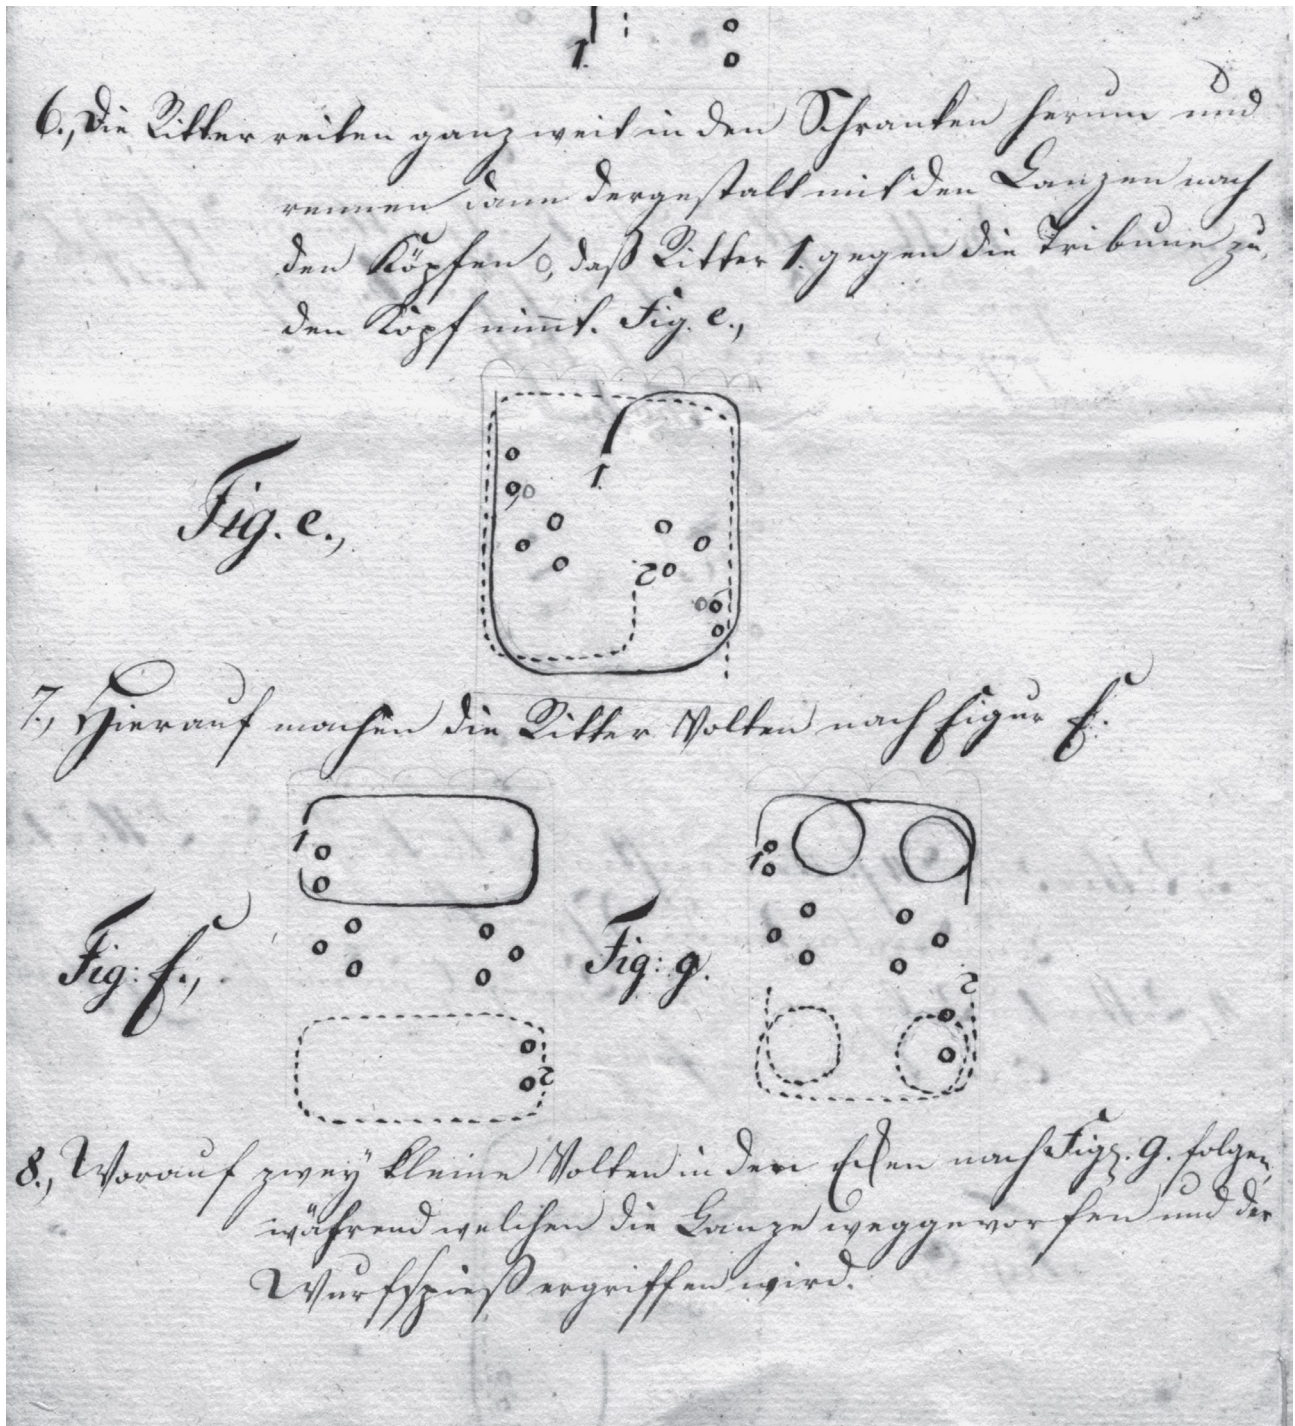 1.
6., Die Ritter reiten ganz weit in den Schranken herum und
rennen dann dergestalt mit den Lanzen nach
den Köpfen o, daß Ritter 1. gegen die Tribune zu,
den Kopf nimmt. Fig. e.,
1.
Fig. e.,
2
7., Hierauf machen die Ritter Volten nach Figur f.
1
1
Fig: f.,
Fig: g.
2
2
8., Worauf zwey kleine Volten in den Ecken nach Fig. g. folgen,
während welchen die Lanze weggeworfen und der
Wurfspieß ergriffen wird.